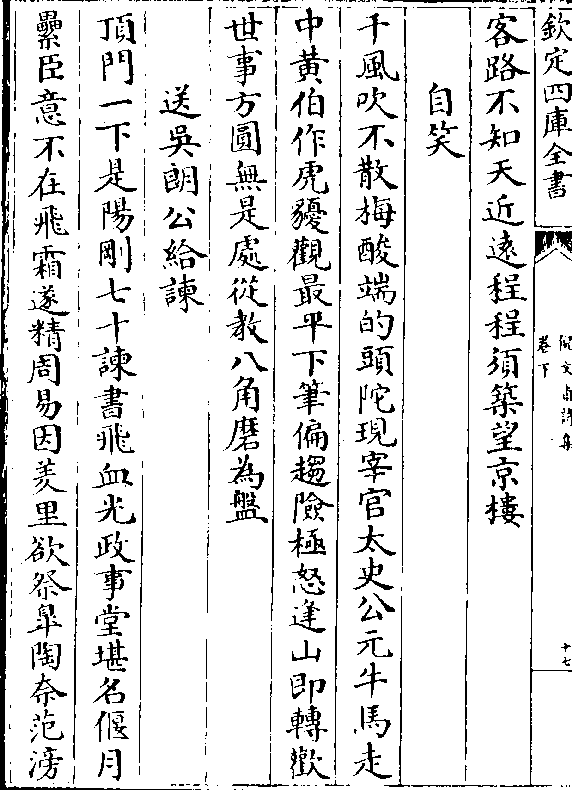 欽定四庫全書
倪文貞詩集
卷下
十七
客路不知天近遠程程須築望京樓
自笑
千風吹不散梅酸端的頭陀現宰官太史公元牛馬走
中黄伯作虎獶觀最平下筆偏趨險極怒逢山即轉歡
世事方圓無是處從教八角磨為盤
送吳朗公給諫
頂門一下是陽剛七十諫書飛血光政事堂堪名偃月
纍臣意不在飛霜遂精周易因羑里欲祭臯陶奈范滂